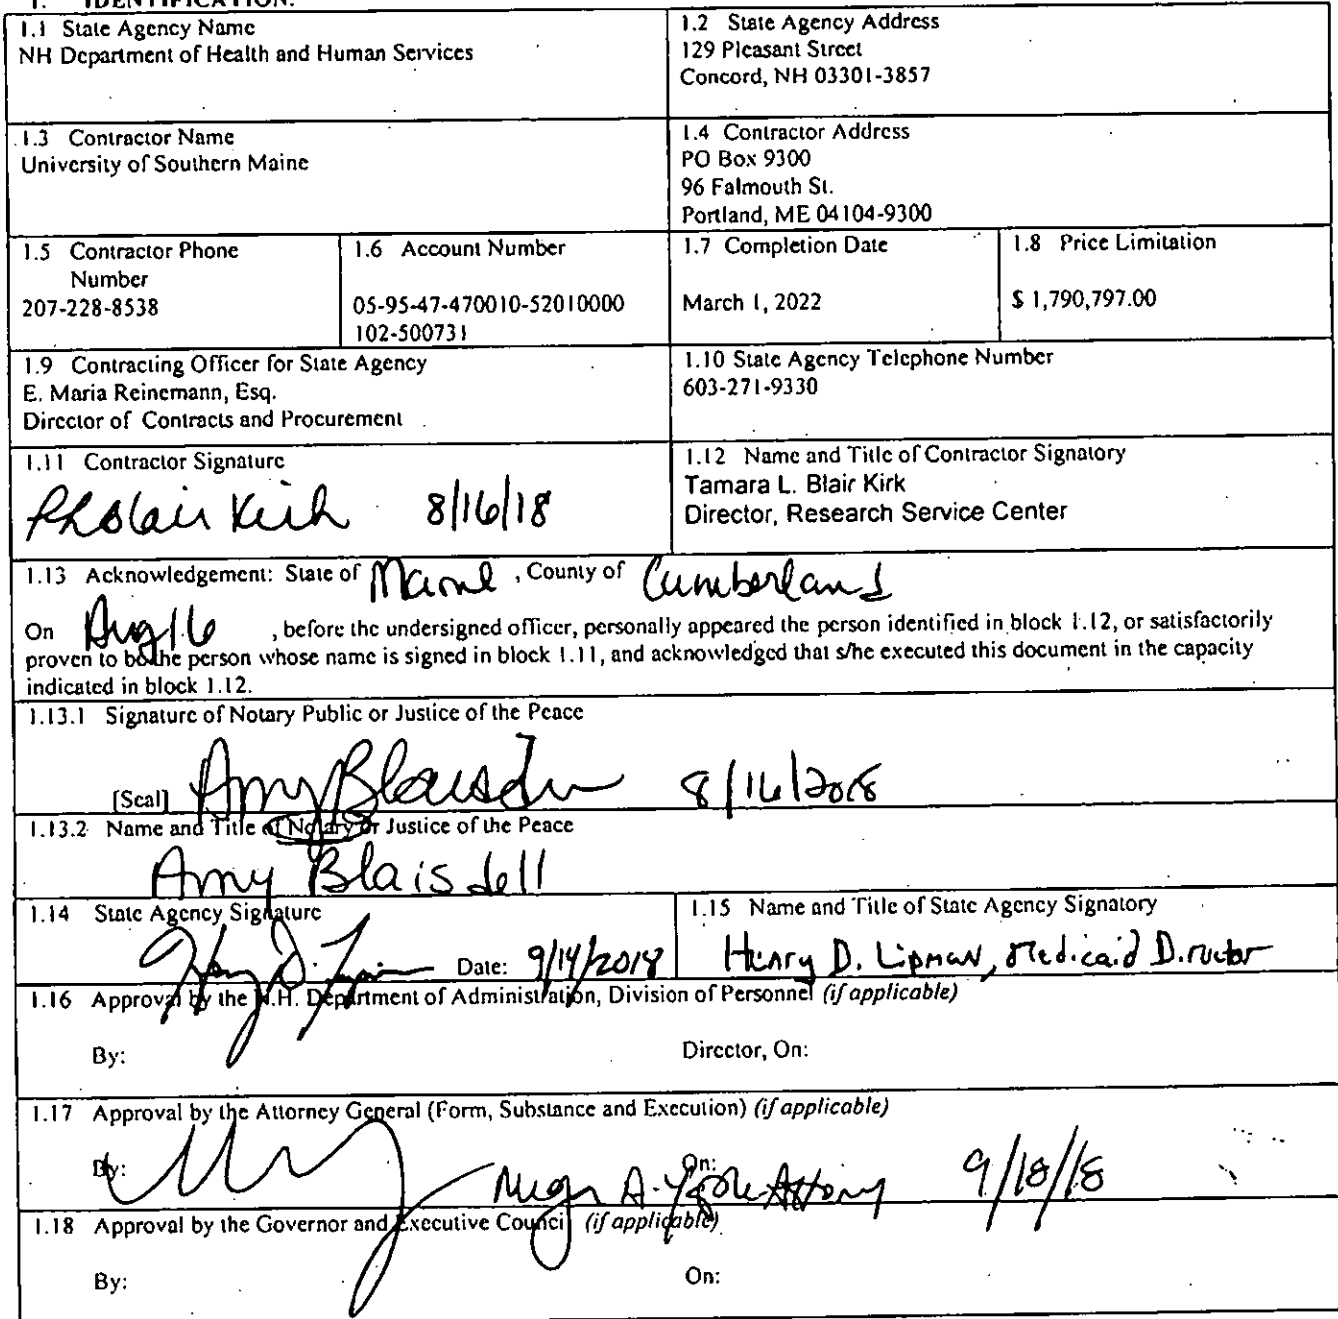 1. IDENTIFICATION.
1.1 State Agency Name
NH Department of Health and Human Services
1.2 State Agency Address
129 Pleasant Street
Concord, NH 03301-3857
1.3 Contractor Name
University of Southern Maine
1.4 Contractor Address
PO Box 9300
96 Falmouth St.
Portland, ME 04104-9300
1.5 Contractor Phone
Number
207-228-8538
1.6 Account Number
05-95-47-470010-52010000
102-500731
1.7 Completion Date
March 1, 2022
1.8 Price Limitation
$ 1,790,797.00
1.9 Contracting Officer for State Agency
E. Maria Reinemann, Esq.
Director of Contracts and Procurement
1.10 State Agency Telephone Number
603-271-9330
1.11 Contractor Signature
Blair Kirk 8/16/18
1.12 Name and Title of Contractor Signatory
Tamara L. Blair Kirk
Director, Research Service Center
1.13 Acknowledgement: State of Maine , County of Cumberland
On Aug 16 , before the undersigned officer, personally appeared the person identified in block 1.12, or satisfactorily
proven to be the person whose name is signed in block 1.11, and acknowledged that s/he executed this document in the capacity
indicated in block 1.12.
1.13.1 Signature of Notary Public or Justice of the Peace
[Seal] Amy Blaisdell 8/16/2018
1.13.2 Name and Title of Notary or Justice of the Peace
Amy Blaisdell
1.14 State Agency Signature
Date: 9/14/2018
1.15 Name and Title of State Agency Signatory
Henry D. Lipman, Medicaid Director
1.16 Approval by the N.H. Department of Administration, Division of Personnel (if applicable)
By: Director, On:
1.17 Approval by the Attorney General (Form, Substance and Execution) (if applicable)
By: On: A. 9/18/18
1.18 Approval by the Governor and Executive Council (if applicable)
By: On: